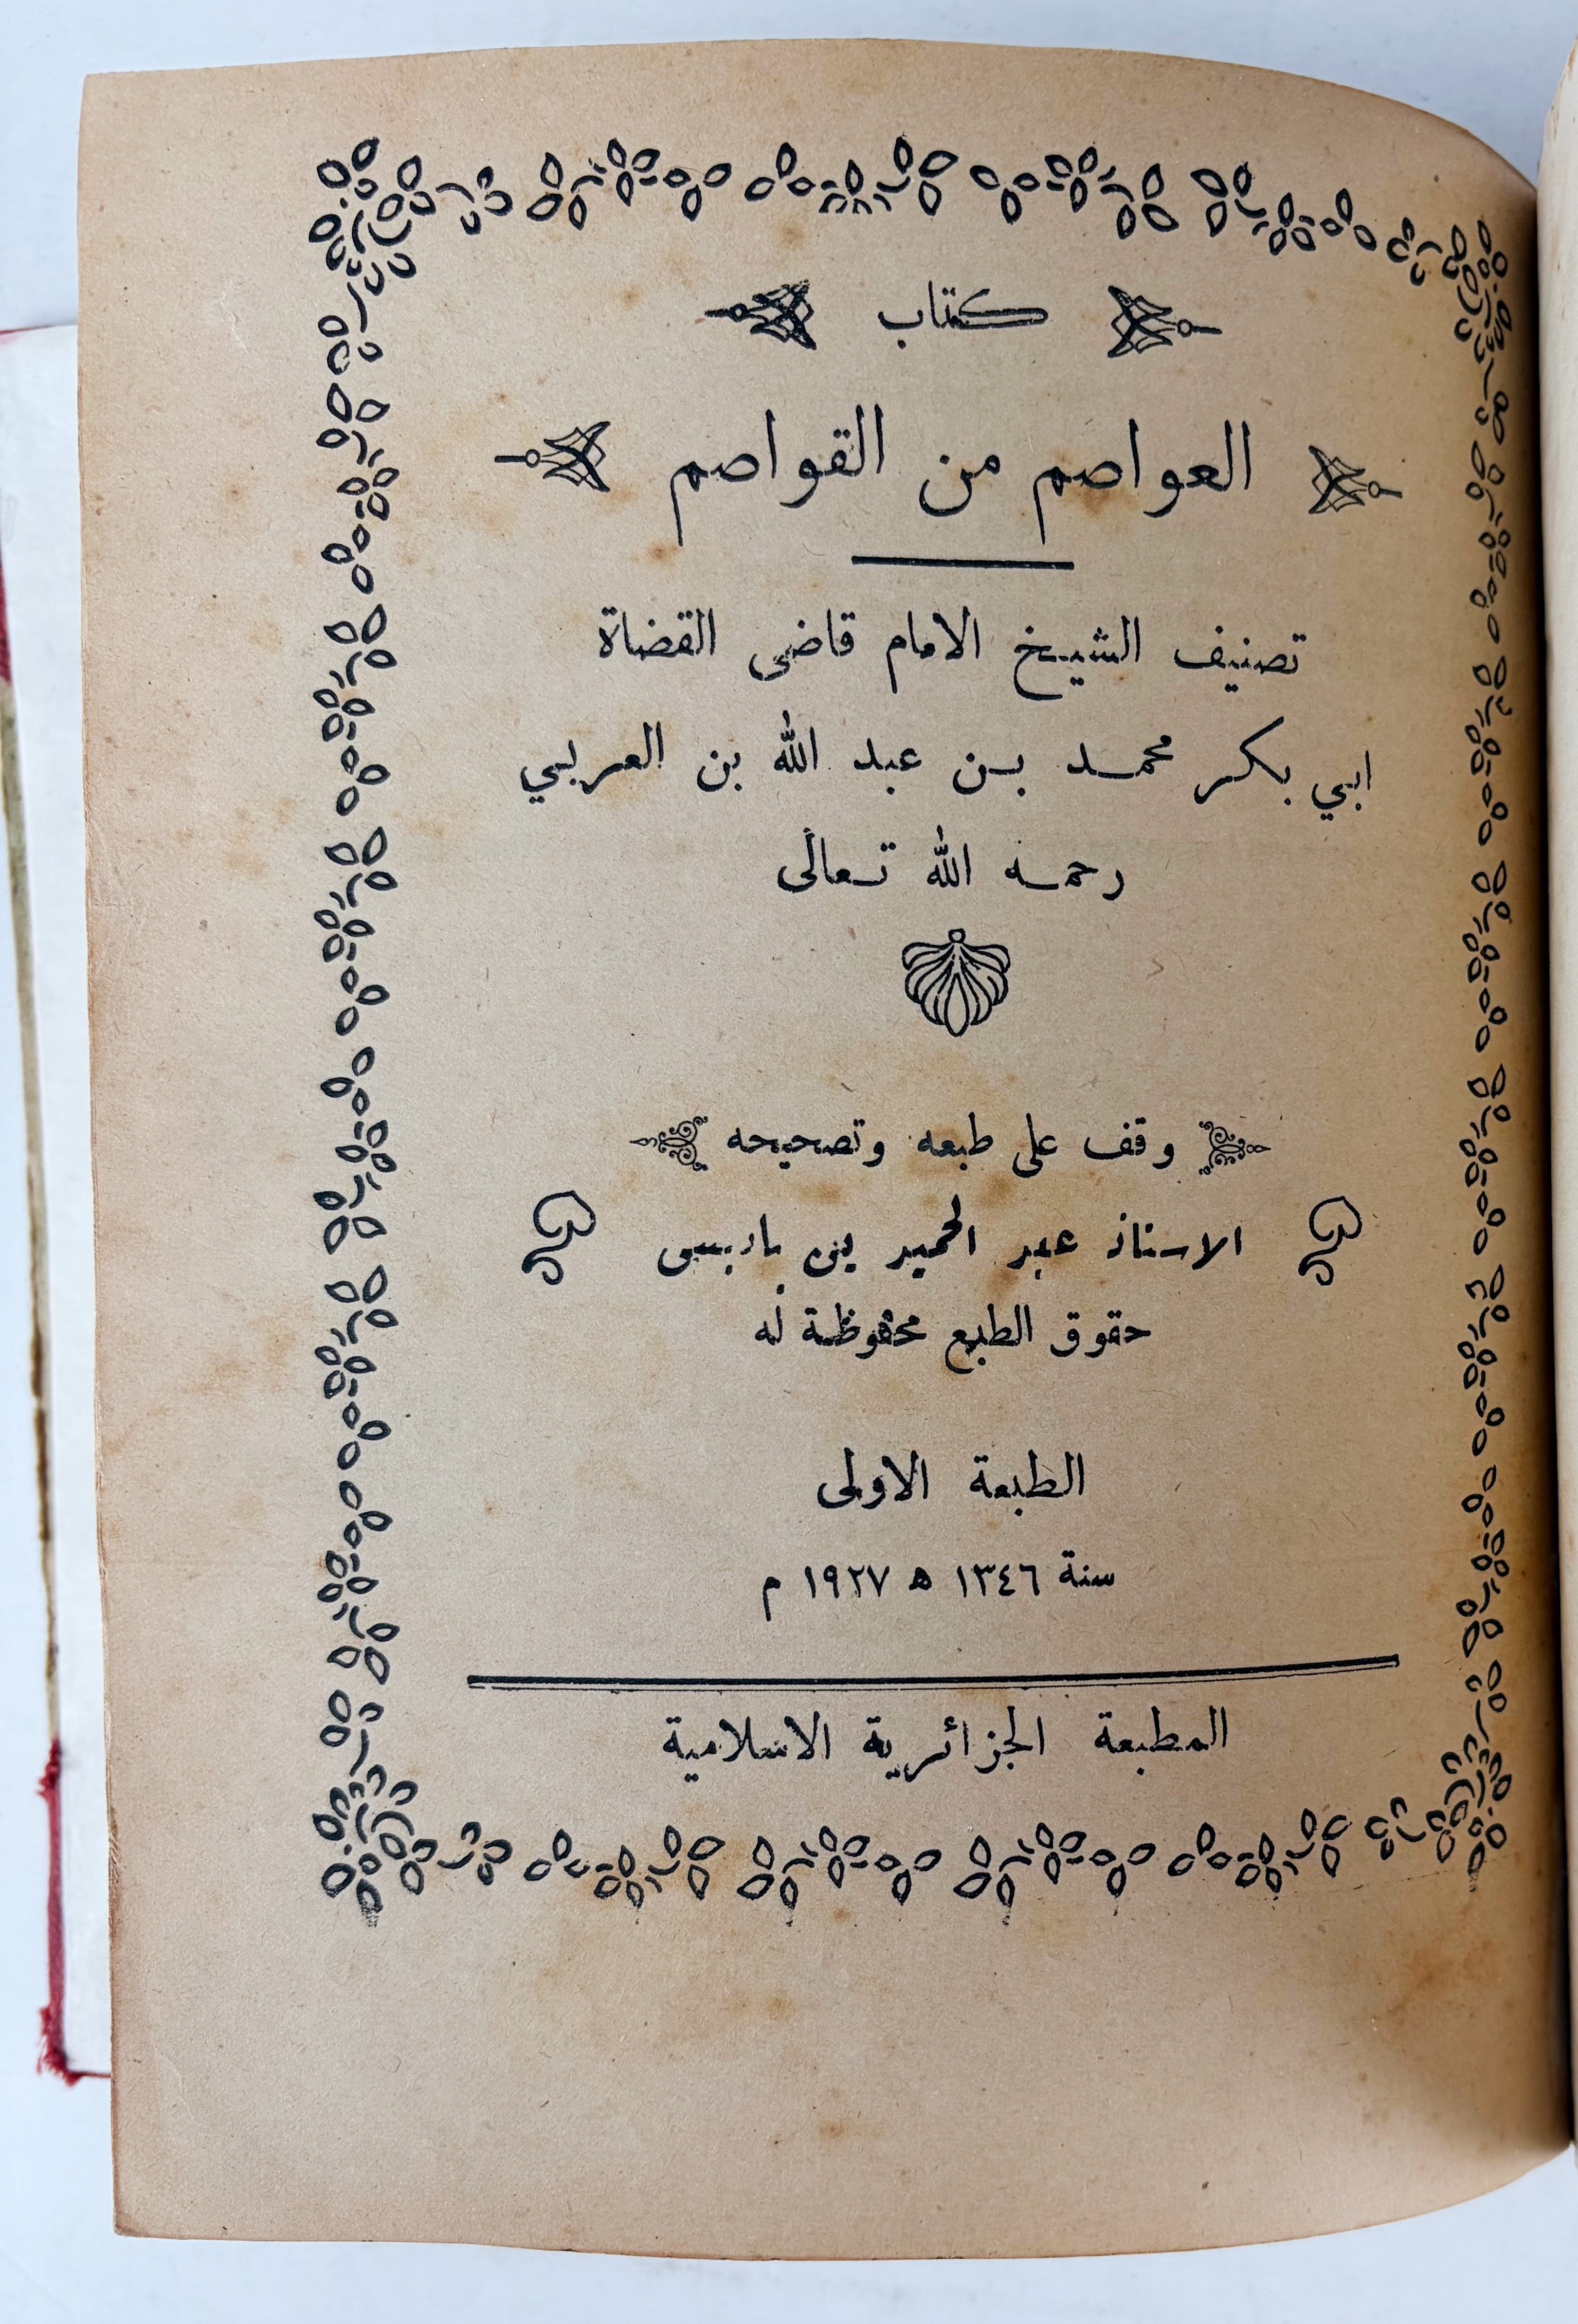 كتاب
العواصم من القواصم
تصنيف الشيخ الامام قاضى القضاة
ابي بكر محمد بن عبد الله بن العربي
رحمه الله تعالى
وقف على طبعه وتصحيحه
الاستاذ عبد الحميد بن باديس
حقوق الطبع محفوظة له
الطبعة الاولى
سنة ١٣٤٦ ه ١٩٢٧ م
المطبعة الجزائرية الاسلامية